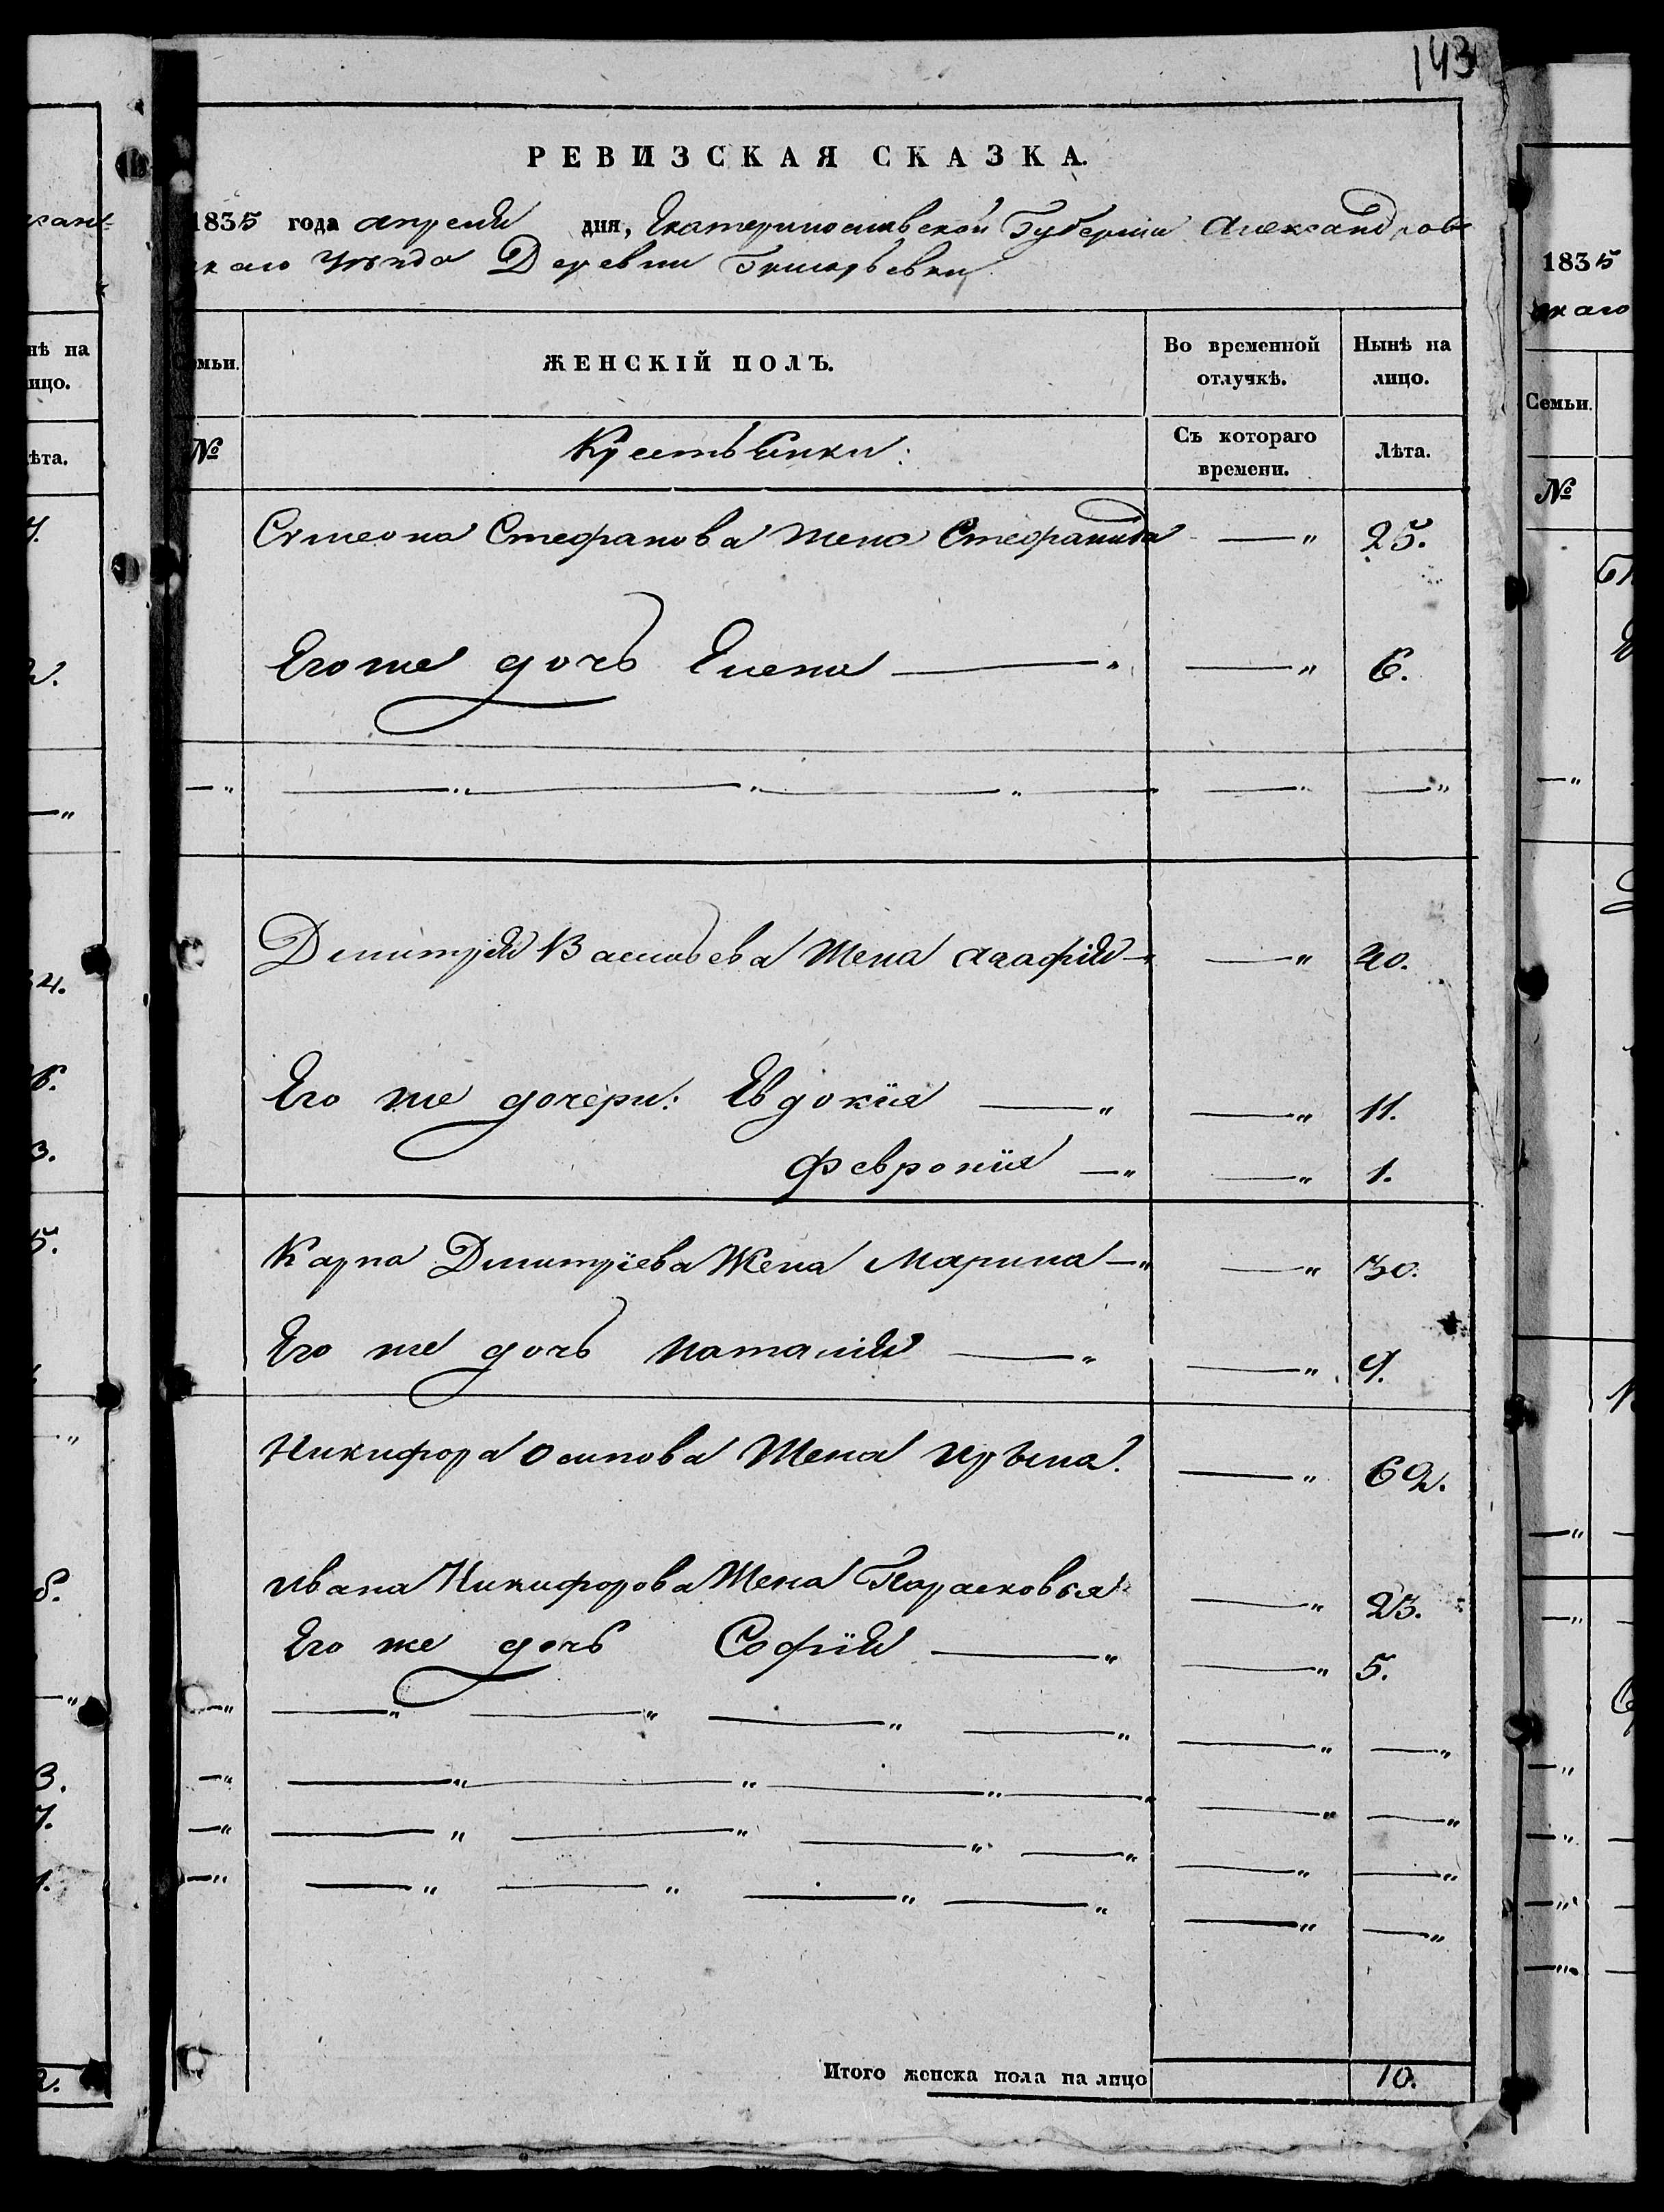 143
РЕВИЗСКАЯ СКАЗКА.
1835 года апреля дня, Екатеринославской Губернии Александров
скаго уѣзда Деревни
мьи. ЖЕНСКІЙ ПОЛЪ. Во временной отлучкѣ. Нынѣ на лицо.
№ Крестьянки: Съ котораго времени. Лѣта.
Симеона Стефанова жена Стефанида —„ 25.
Его же дочь Елена —„ —„ 6.
—„ —„ —„ —„ — —„ —„
Дмитрия Васильева жена Агафия —„ —„ 40.
Его же дочери: Евдокия —„ —„ 11.
Феврония —„ —„ 1.
Карпа Дмитриева Жена Марина —„ —„ 30.
Его же дочь Наталия —„ —„ 9.
Никифора Осипова Жена Ирына. —„ 62.
Ивана Никифорова Жена Парасковья —„ 23.
Его же дочь София —„ —„ 5.
—„ —„ —„ —„ —„ —„ —„
—„ —„ —„ —„ —„ —„ —„
—„ —„ —„ —„ —„ —„ —„
—„ —„ —„ —„ —„ —„ —„
Итого женска пола на лицо 10.
нѣ на
ицо.
ѣта.
1835
скаго
Семьи.
№